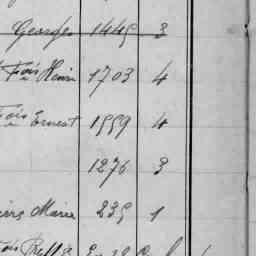 Georges 1445 3
Fois Henri 1703 4
Fois Ernest 1559 4
1276 3
Marie 235 1